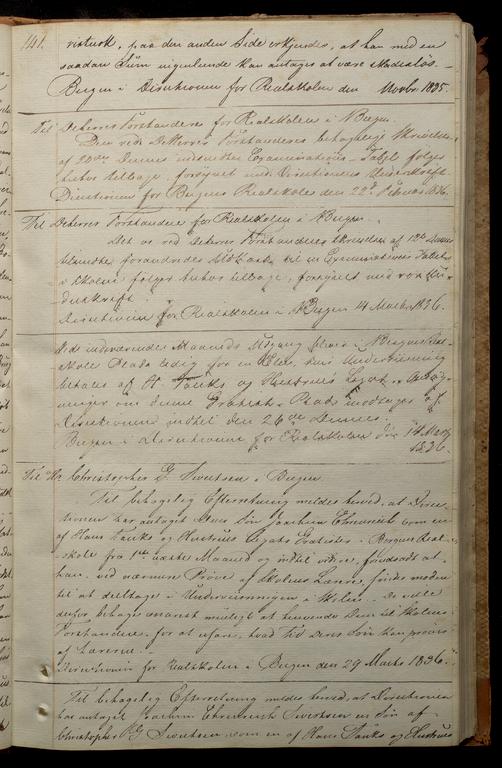 141.
risturk, paa den anden Side erkjendes, at han med en
saadan Sum ingenlunde kan antages at være skadesløs.
Bergen i Direktionen for Realskolen den Novbr 1835.
Til Deherrer Forstandere for Realskolen i Bergen.
Den ved DeHerrers Forstanderes behagelige Skrivelse
af 20de Dennes indsendte Examinations-Tabel følger
hermed tilbage, forsynet med Direktionens Underskrift.
Direktionen for Bergens Realskole den 22de Februar 1836.
Til Deherrer Forstandere for Realskolen i Bergen.
Det os ved Deherrer Forstanderes Skrivelse af 12te Dennes
tilsendte forandrede til en Examinations Tabel
i Skolen følger herved tilbage, forsynet med vor Un-
derskrift.
Direktionen for Realskolen i Bergen 14 Marts 1836.
Ved indeværende Maaneds Udgang bliver i Bergens Real-
skole Plads ledig for en Elev, hvis Underviisning
betales af H. Tanks og Hustrues Legat. Ansøg-
ninger om denne Gratist-Plads modtages af
Direktionen indtil den 26de Dennes.
Bergen i Direktionen for Realskolen den 14 Marts
1836.
Til Hr Christopher G. Sivertsen i Bergen
Til behagelig Efterretning meldes herved, at Direk-
tionen har antaget Deres Søn Joachim Ehrenreich som en
af Hans Tanks og Hustrues Legats Gratister i Bergens Real-
skole fra 1ste næste Maaned og indtil videre, forudsat at
han, ved nærmere Prøve af Skolens Lærere, findes moden
til at deeltage i Underviisningen i Skolen. De ville
derfor behage snarest mueligt at henvende Dem til Skolens
Forstandere, for at erfare, hvad Tid Deres Søn kan prøves
af Lærerne.
Direktionen for Realskolen i Bergen den 29 Marts 1836.
Til behagelig Efterretning meldes herved, at Direktionen
har antaget Joachim Ehrenreich Sivertsen en Søn af
Christopher G Sivertsen, som en af Hans Tanks og Hustrues